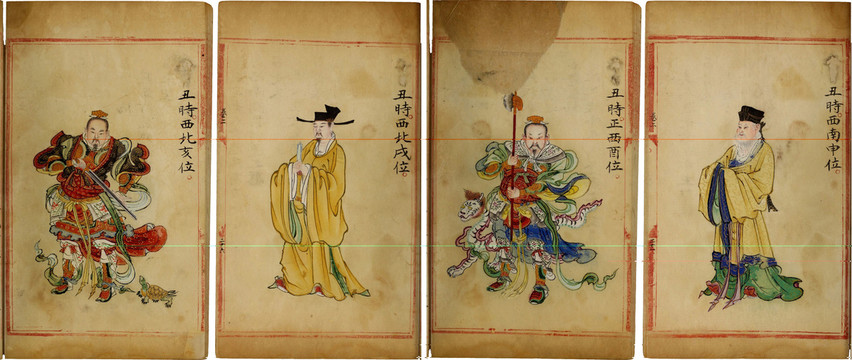 丑時西北亥位
丑時西北戌位
丑時正西酉位
丑時西南申位